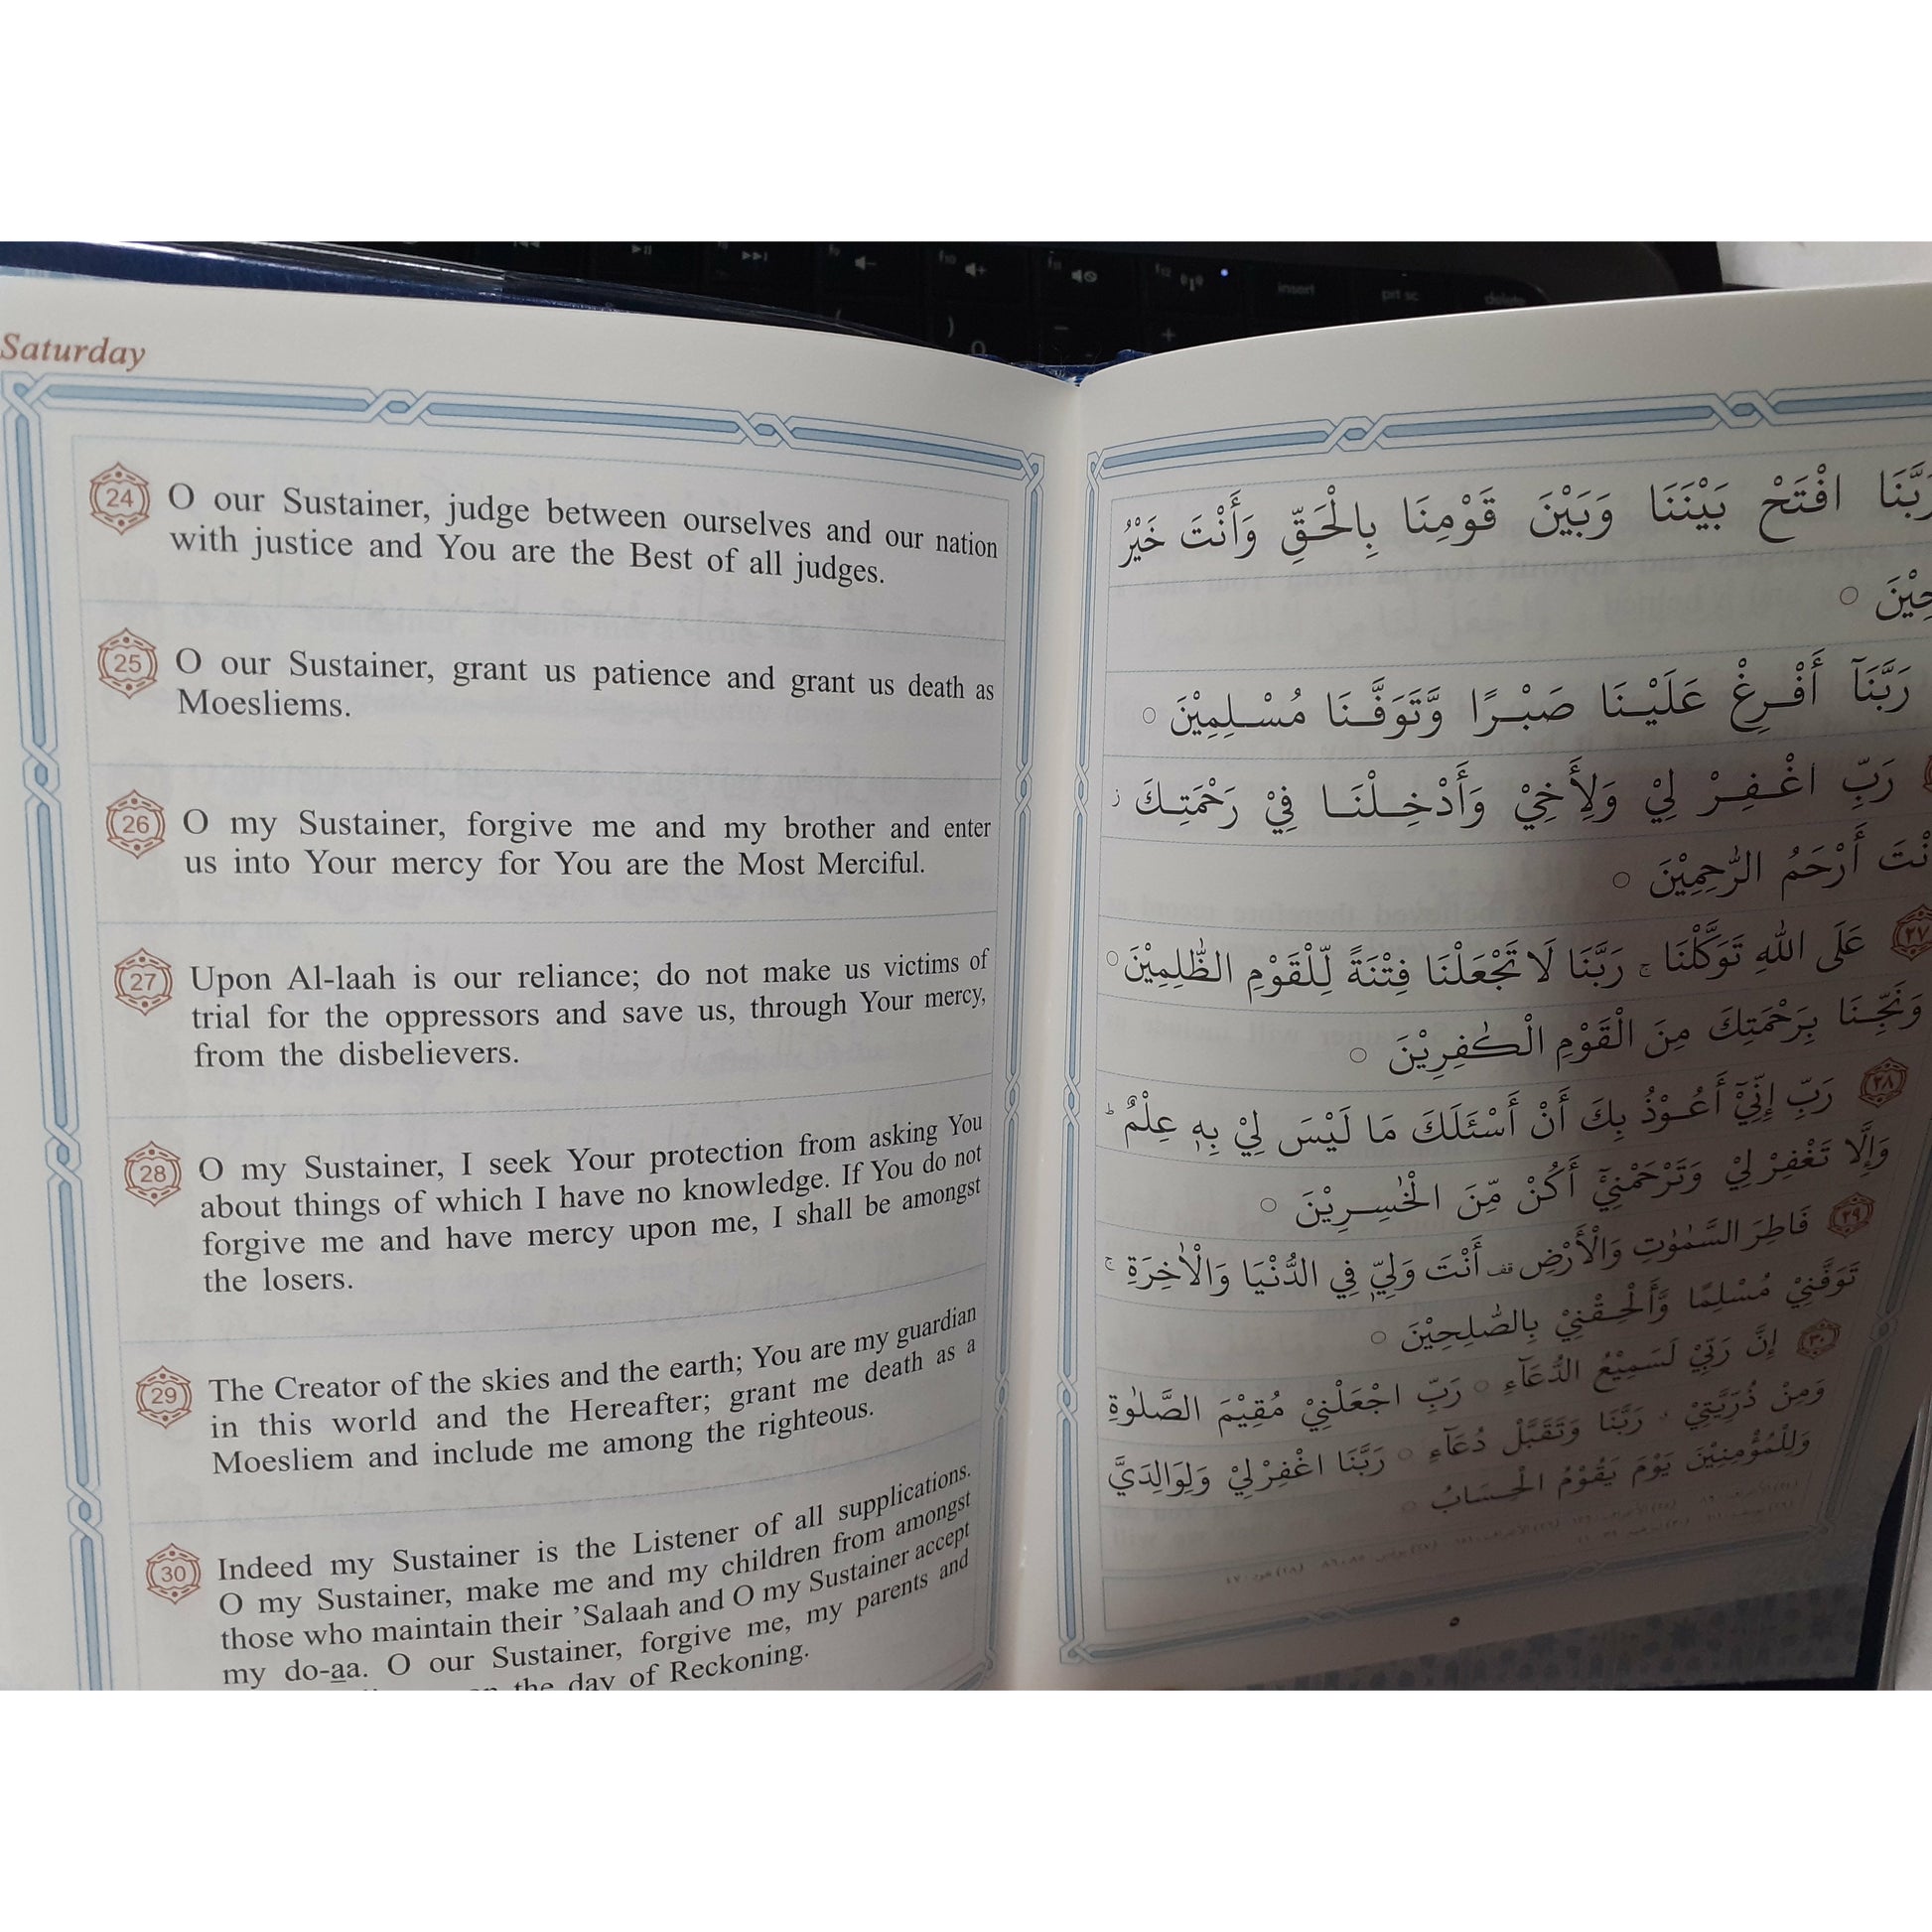 Saturday
24
O our Sustainer, judge between ourselves and our nation
with justice and You are the Best of all judges.
25
O our Sustainer, grant us patience and grant us death as
Moesliems.
26
O my Sustainer, forgive me and my brother and enter
us into Your mercy for You are the Most Merciful.
27
Upon Al-laah is our reliance; do not make us victims of
trial for the oppressors and save us, through Your mercy,
from the disbelievers.
28
O my Sustainer, I seek Your protection from asking You
about things of which I have no knowledge. If You do not
forgive me and have mercy upon me, I shall be amongst
the losers.
29
The Creator of the skies and the earth; You are my guardian
in this world and the Hereafter; grant me death as a
Moesliem and include me among the righteous.
30
Indeed my Sustainer is the Listener of all supplications.
O my Sustainer, make me and my children from amongst
those who maintain their ’Salaah and O my Sustainer accept
my do-aa. O our Sustainer, forgive me, my parents and
the day of Reckoning.
رَبَّنَا افْتَحْ بَيْنَنَا وَبَيْنَ قَوْمِنَا بِالْحَقِّ وَأَنْتَ خَيْرُ
رَبَّنَآ أَفْرِغْ عَلَيْنَا صَبْرًا وَّتَوَفَّنَا مُسْلِمِيْنَ ○
رَبِّ اغْفِرْ لِيْ وَلِأَخِيْ وَأَدْخِلْنَا فِيْ رَحْمَتِكَ ز
أَرْحَمُ الرّٰحِمِيْنَ ○
٢٧ عَلَى اللهِ تَوَكَّلْنَا ج رَبَّنَا لَا تَجْعَلْنَا فِتْنَةً لِّلْقَوْمِ الظّٰلِمِيْنَ ○
وَنَجِّنَا بِرَحْمَتِكَ مِنَ الْقَوْمِ الْكٰفِرِيْنَ ○
٢٨ رَبِّ إِنِّيْٓ أَعُوْذُ بِكَ أَنْ أَسْئَلَكَ مَا لَيْسَ لِيْ بِهٖ عِلْمٌ ط
وَإِلَّا تَغْفِرْ لِيْ وَتَرْحَمْنِيْٓ أَكُنْ مِّنَ الْخٰسِرِيْنَ ○
٢٩ فَاطِرَ السَّمٰوٰتِ وَالْأَرْضِ قف أَنْتَ وَلِيّٖ فِي الدُّنْيَا وَالْاٰخِرَةِ ج
تَوَفَّنِيْ مُسْلِمًا وَّأَلْحِقْنِيْ بِالصّٰلِحِيْنَ ○
٣٠ إِنَّ رَبِّيْ لَسَمِيْعُ الدُّعَآءِ ○ رَبِّ اجْعَلْنِيْ مُقِيْمَ الصَّلٰوةِ
وَمِنْ ذُرِّيَّتِيْ ، رَبَّنَا وَتَقَبَّلْ دُعَآءِ ○ رَبَّنَا اغْفِرْ لِيْ وَلِوَالِدَيَّ
وَلِلْمُؤْمِنِيْنَ يَوْمَ يَقُوْمُ الْحِسَابُ ○
٥
insert
prt sc
delete